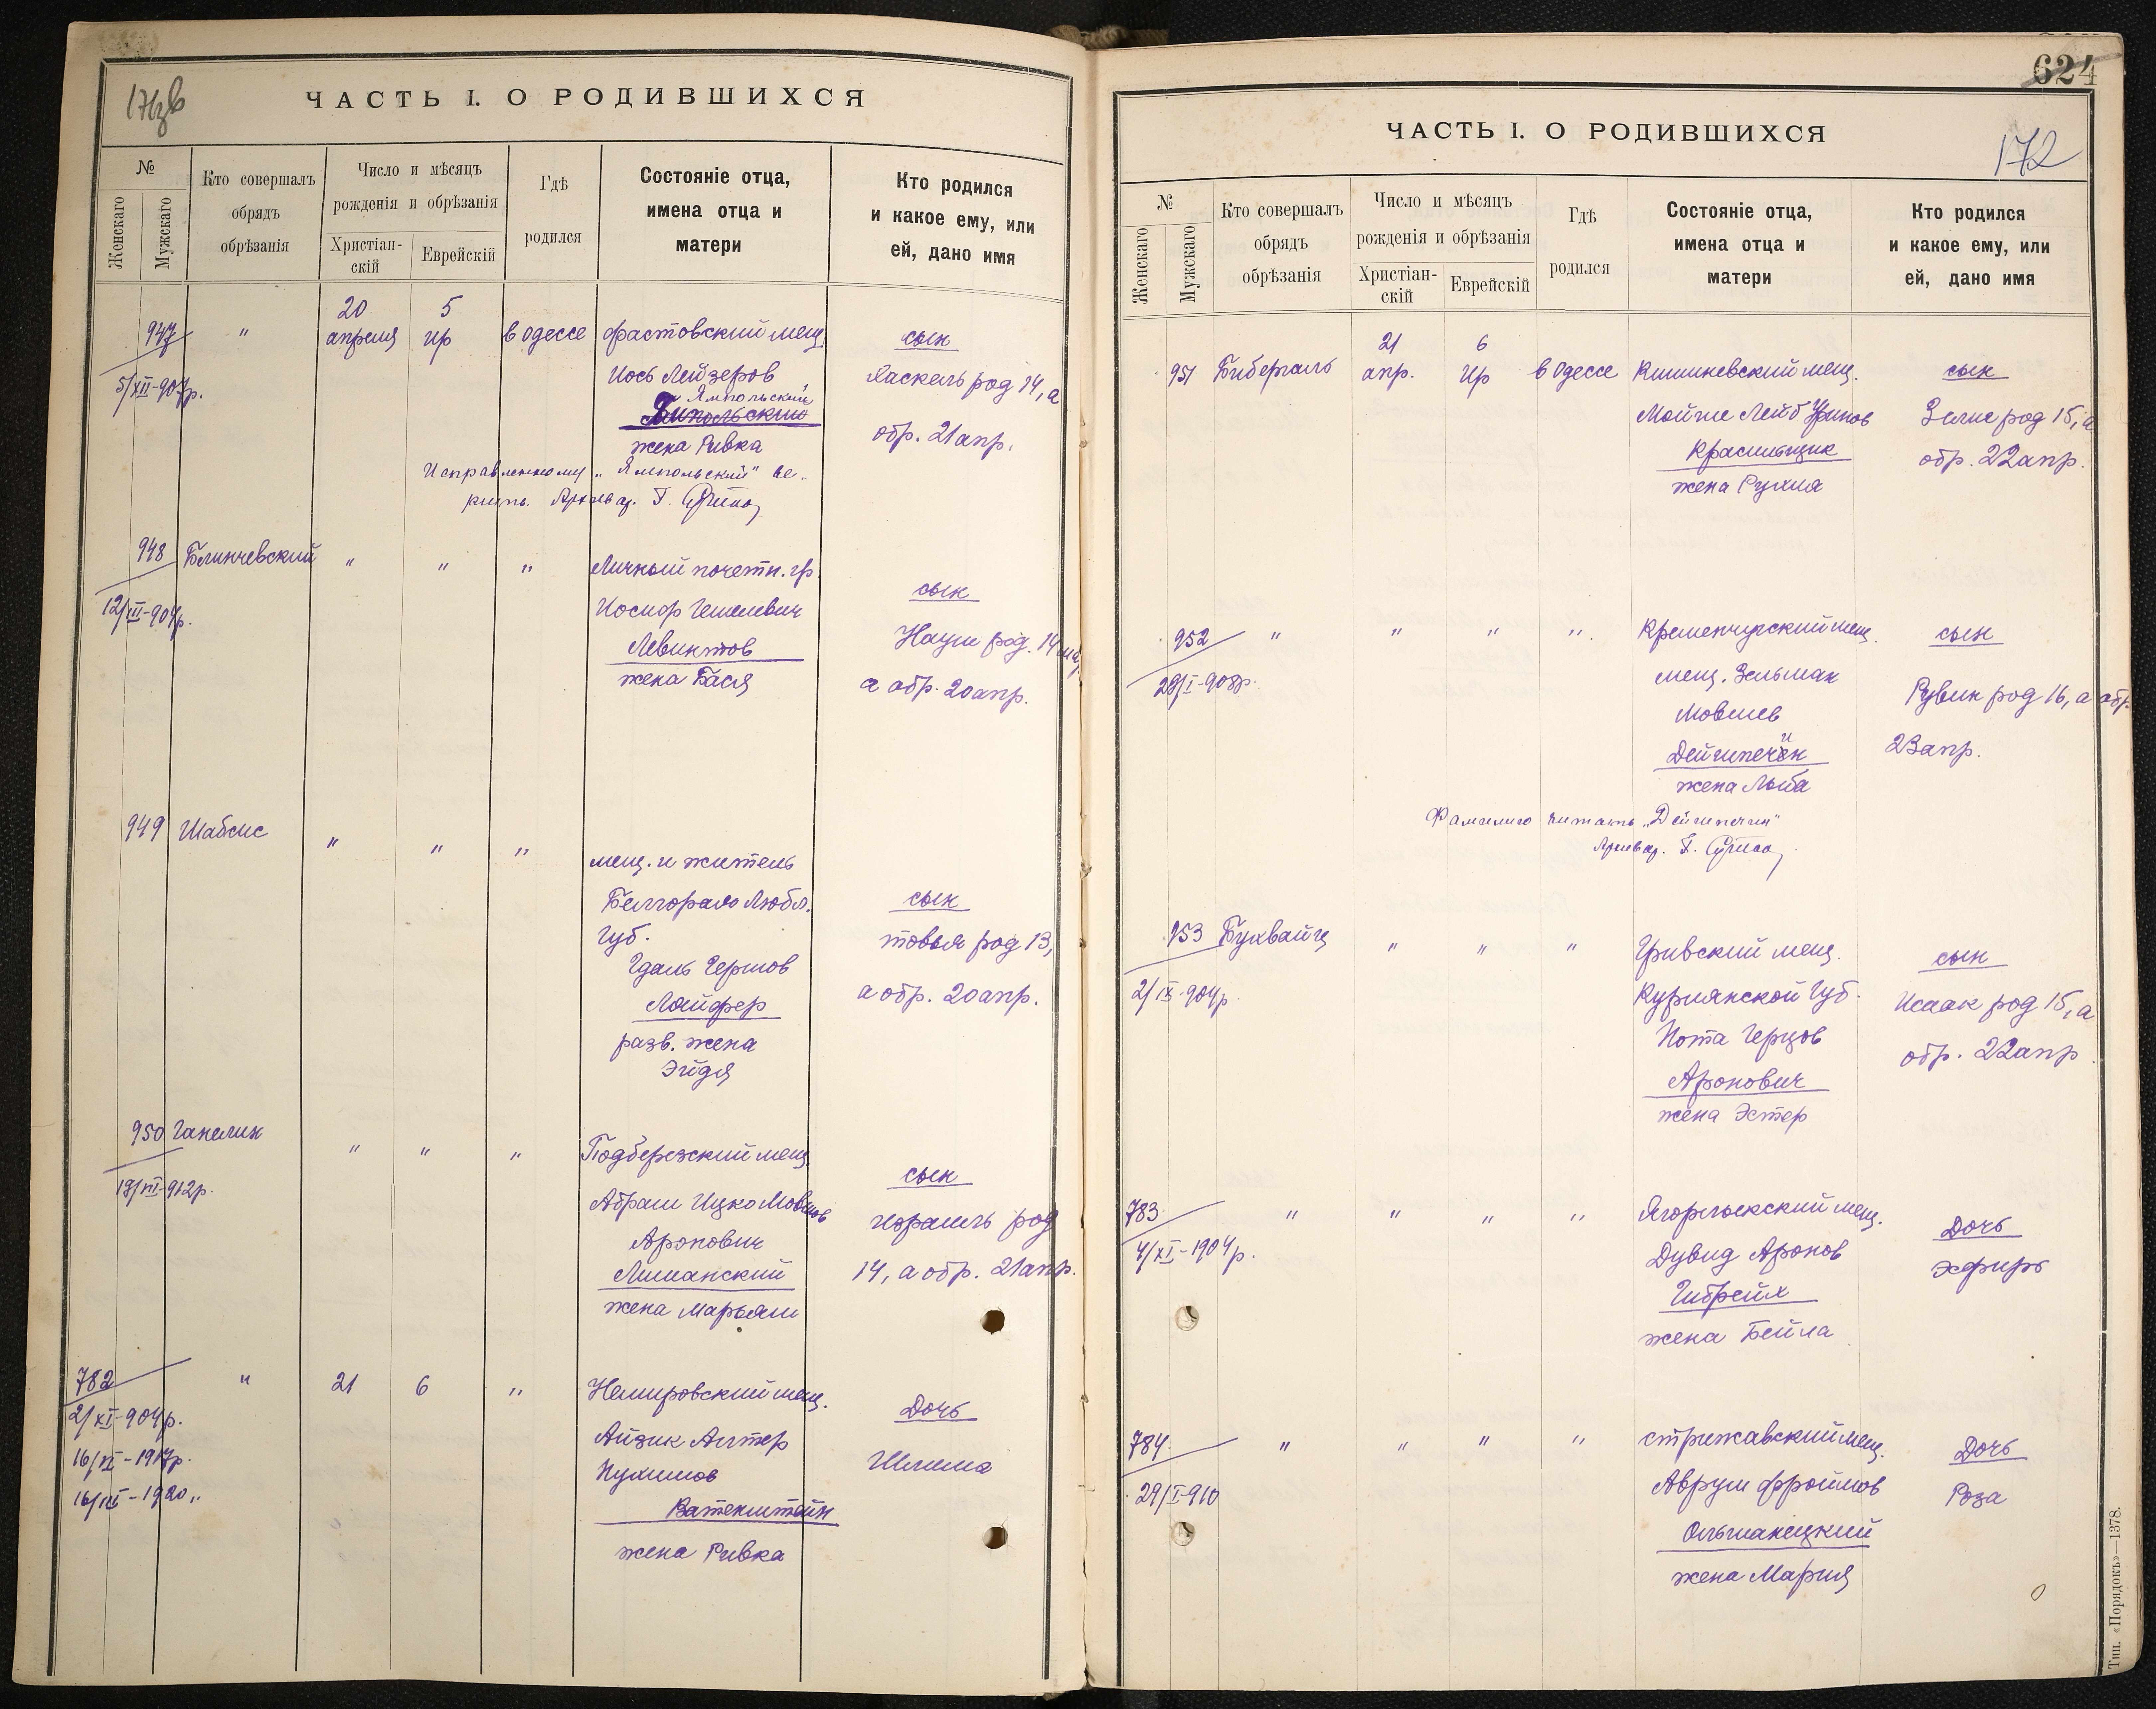 171 об
ЧАСТЬ I. О РОДИВШИХСЯ
№
Женскаго
Мужскаго
Кто совершалъ
обрядъ
обрѣзанія
Число и мѣсяцъ
рожденія и обрѣзанія
Христіан-
скій
Еврейскій
Гдѣ
родился
Состояніе отца,
имена отца и
матери
Кто родился
и какое ему, или
ей, дано имя
20 5
947 " апреля Ир в Одессе Фастовский мещ. сын
5/XII-907р.
Иось Лейзеров Хаскель род 14, а
Ямпольский
жена Ривка обр. 21 апр.
Исправленному „Ямпольский" ве-
рить. Архивар.
948 Блинчевский " " " Личный почетн. гр. сын
12/III-904р.
Иосиф Гешелевич
Левинтов Наум род. 14
жена Бася а обр. 20 апр.
949 Шабсис " " " мещ. и житель
Белгорая Любл. сын
губ. товья род 13,
Гдаль Гершов
Лайфер а обр. 20 апр.
разв. жена
Эйдя
950 Ганелин " " " Подберезский мещ. сын
Абрам Ицко Мовшов
Израиль род
Аронович
Лиманский 14, а обр. 21 апр.
жена Марьям
782 " 21 6 " Немировский мещ. Дочь
2/XI-904р.
Айзик Алтер
Нухимов Шлима
Ватенштейн
жена Ривка
624
172
ЧАСТЬ I. О РОДИВШИХСЯ
№
Женскаго
Мужскаго
Кто совершалъ
обрядъ
обрѣзанія
Число и мѣсяцъ
рожденія и обрѣзанія
Христіан-
скій
Еврейскій
Гдѣ
родился
Состояніе отца,
имена отца и
матери
Кто родился
и какое ему, или
ей, дано имя
21 6
951 Бибергаль апр. Ир в Одессе Кишиневский мещ. сын
Мойше Лейб Уринов Зелик род 15, а
Красильщик обр. 22 апр.
жена Рухля
952 " " " " Кременчугский мещ. сын
28/I-908р.
мещ. Зельман
Мовшев Рувин род 16, а обр.
Дейчпечин 23 апр.
жена Люба
Фамилию читать „Дейчпечин"
Архивар.
953 Бухвайц " " " Гривский мещ. сын
2/IX-904р.
Курлянской губ. Исаак род 15, а
Нота Герцов обр. 22 апр
Аронович
жена Эстер
783 " " " " Ягорлыкский мещ. Дочь
4/XI-1904р.
Дувид Аронов Эсфирь
Гибрейх
жена Бейла
784 " " " " стрижавский мещ. Дочь
29/I-910
Аврум Фроймов Роза
Ольшанецкий
жена Мария
Тип. «Порядокъ»—1378.